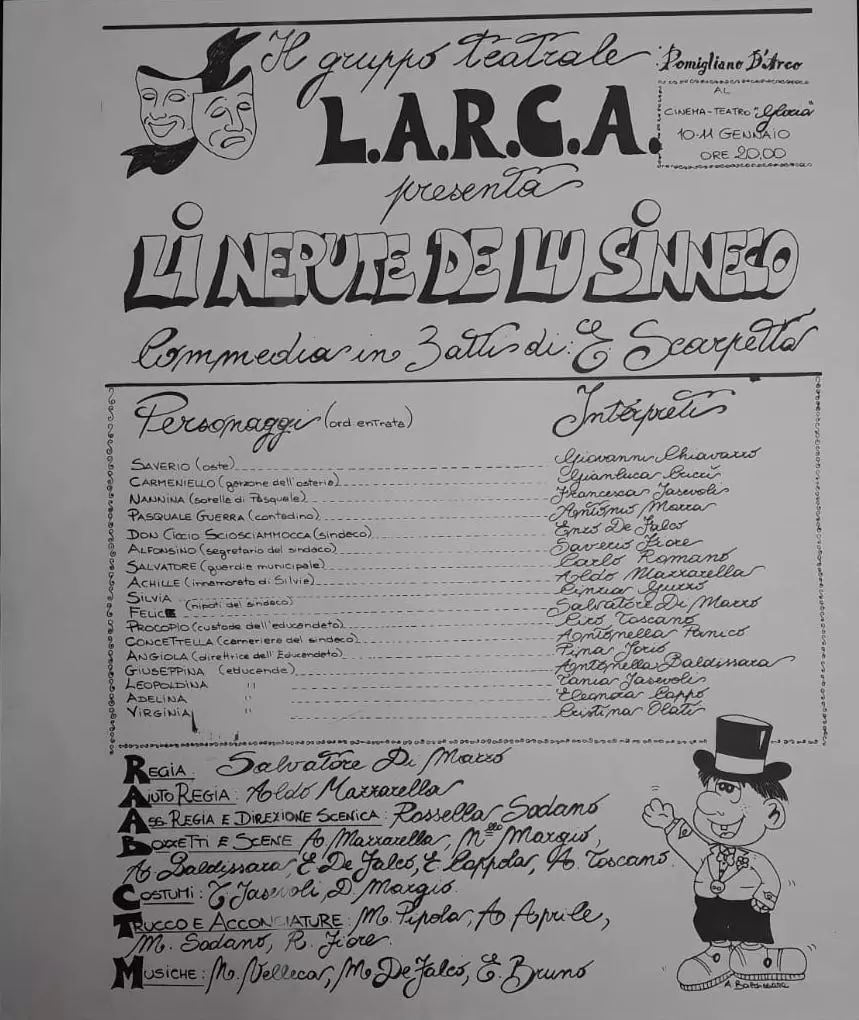 Il gruppo teatrale
L.A.R.C.A.
presenta
Pomigliano D'Arco
AL
CINEMA-TEATRO "Gloria"
10-11 GENNAIO
ORE 20,00
LI NEPUTE DE LU SINNECO
Commedia in 3 atti di: E. Scarpetta
Personaggi (ord. entrata) Interpreti
SAVERIO (oste) Giovanni Chiavazzo
CARMENIELLO (garzone dell'osteria) Gianluca Cucci
NANNINA (sorella di Pasquale) Francesca Iasevoli
PASQUALE GUERRA (contadino) Antonio Marra
DON Ciccio SCIOSCIAMMOCCA (sindaco) Enzo De Falco
ALFONSINO (segretario del sindaco) Saverio Fiore
SALVATORE (guardia municipale) Carlo Romano
ACHILLE (innamorato di Silvia) Aldo Mazzarella
SILVIA Cinzia Guzzo
(nipoti del sindaco)
FELICE Salvatore Di Marzo
PROCOPIO (custode dell'educandato) Ciro Toscano
CONCETTELLA (cameriera del sindaco) Antonella Panico
ANGIOLA (direttrice dell'Educandato) Pina Iorio
GIUSEPPINA (educande) Antonella Baldissara
LEOPOLDINA " Tania Iasevoli
ADELINA " Eleonora Cappo
VIRGINIA Cristina Olati
REGIA: Salvatore Di Marzo
AIUTO REGIA: Aldo Mazzarella
ASS. REGIA E DIREZIONE SCENICA: Rossella Sodano
BOZZETTI E SCENE A. Mazzarella, M.llo Margio,
A. Baldissara, E. De Falco, E. Cappola, A. Toscano.
COSTUMI: T. Iasevoli, D. Margio.
TRUCCO E ACCONCIATURE: M. Pipola, A. Aprile,
M. Sodano, R. Fiore.
MUSICHE: M. Velleca, M. De Falco, E. Bruno
A. Baldissara